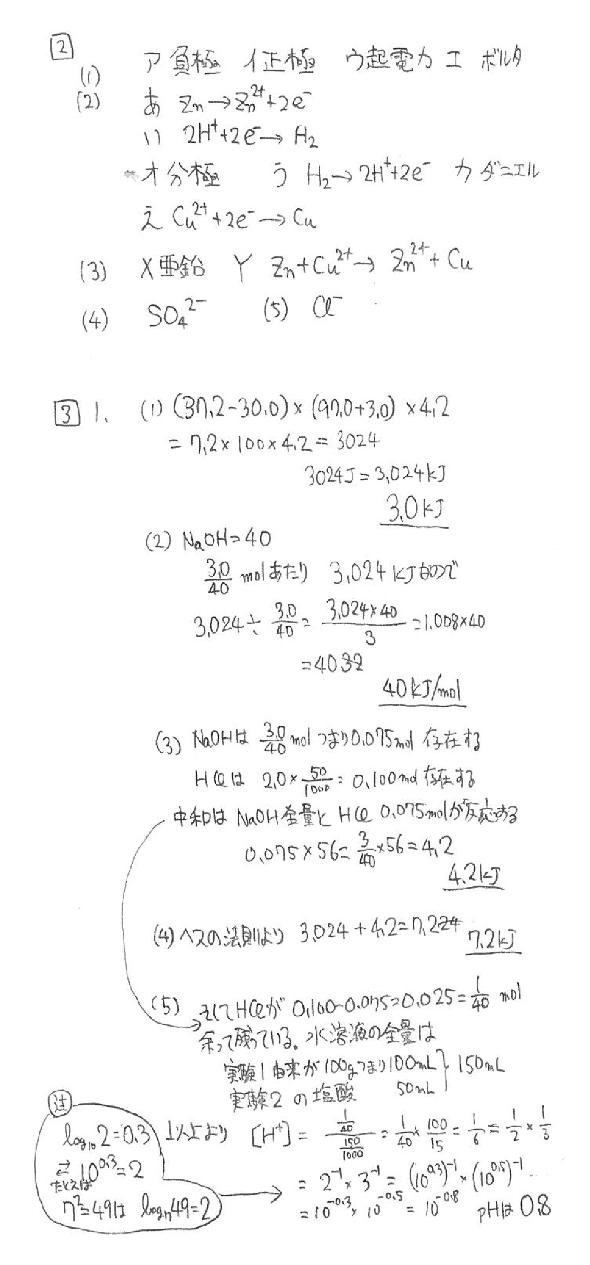 2
(1) ア 負極 イ 正極 ウ 起電力 エ ボルタ
(2) あ Zn→Zn²⁺+2e⁻
い 2H⁺+2e⁻→H₂
オ 分極 う H₂→2H⁺+2e⁻ カ ダニエル
え Cu²⁺+2e⁻→Cu
(3) X 亜鉛 Y Zn+Cu²⁺→Zn²⁺+Cu
(4) SO₄²⁻ (5) Cl⁻
3 1. (1) (37.2-30.0)×(97.0+3.0)×4.2
=7.2×100×4.2=3024
3024J=3.024kJ
3.0kJ
(2) NaOH=40
3.0/40 molあたり 3.024kJなので
3.024÷3.0/40=3.024×40/3=1.008×40
=40.32
40kJ/mol
(3) NaOHは 3.0/40 molつまり0.075mol 存在する
HClは 2.0×50/1000=0.100mol存在する
中和は NaOH全量と HCl 0.075molが反応する
0.075×56=3/40×56=4.2
4.2kJ
(4) ヘスの法則より 3.024+4.2=7.224 7.2kJ
(5) そしてHClが 0.100-0.075=0.025=1/40 mol
余って残っている。水溶液の全量は
実験1由来が100gつまり100mL
実験2の塩酸 50mL } 150mL
以上より [H⁺]=(1/40)/(150/1000)=1/40×100/15=1/6=1/2×1/3
=2⁻¹×3⁻¹=(10^0.3)⁻¹×(10^0.5)⁻¹
=10^-0.3×10^-0.5=10^-0.8 pHは0.8
注
log₁₀2=0.3
⇄10^0.3=2
たとえば
7²=49は log₇49=2